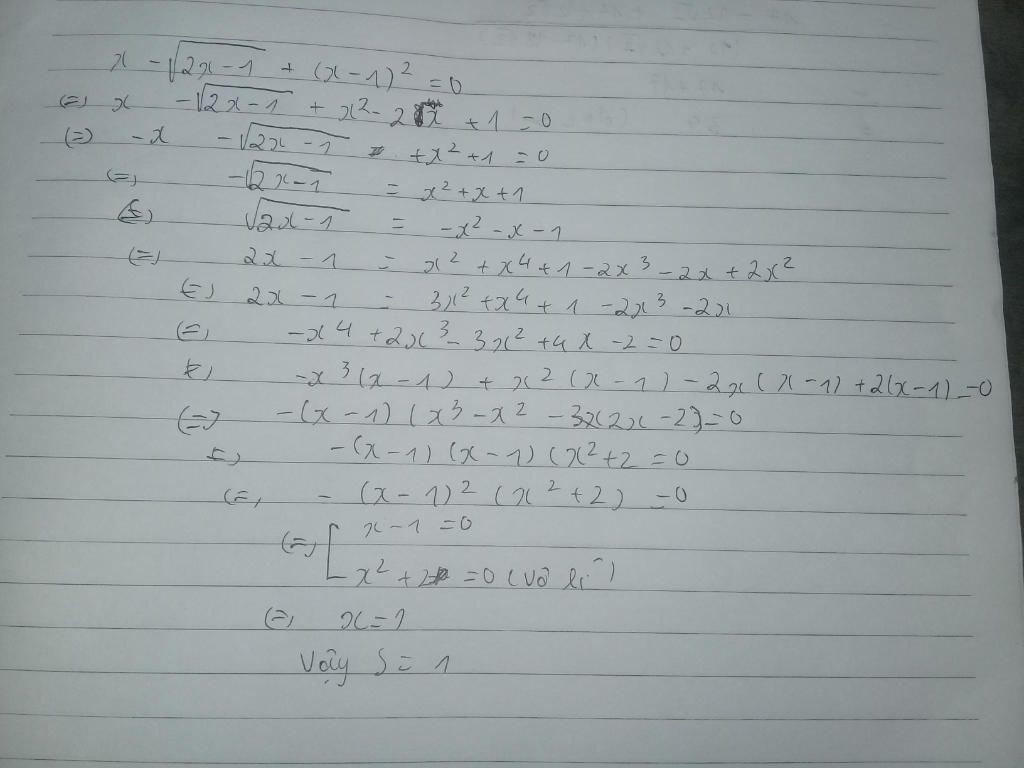 x - √(2x-1) + (x-1)² = 0
(=) x - √(2x-1) + x² - 2x + 1 = 0
(=) -x - √(2x-1) + x² + 1 = 0
(=) -√(2x-1) = x² + x + 1
(=) √(2x-1) = -x² - x - 1
(=) 2x - 1 = x² + x⁴ + 1 - 2x³ - 2x + 2x²
(=) 2x - 1 = 3x² + x⁴ + 1 - 2x³ - 2x
(=) -x⁴ + 2x³ - 3x² + 4x - 2 = 0
(=) -x³(x-1) + x²(x-1) - 2x(x-1) + 2(x-1) = 0
(=) -(x-1)(x³ - x² 2x - 2) = 0
(=) -(x-1)(x-1)(x²+2 = 0
(=) -(x-1)²(x²+2) = 0
(=) [ x-1 = 0
x² + 2 = 0 (vô lí)
(=) x = 1
Vậy S = 1